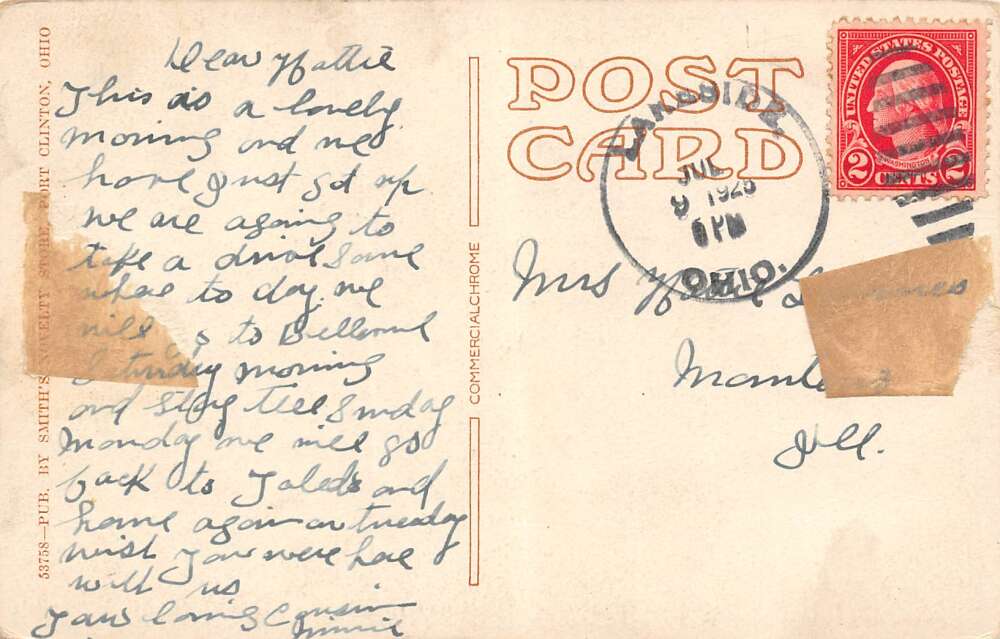 Dear Hattie
This is a lovely
morning and we
have just got up
we are agoing to
take a drive Some
where to day. we
will go to Bellevue
Saturday morning
and stay till Sunday
Monday we will go
back to Toledo and
home again on tuesday
wish you were here
with us
Your loving Cousin
Minnie
POST
CARD
LAKESIDE,
JUL
9 1925
6 PM
OHIO.
UNITED STATES POSTAGE
WASHINGTON
2 CENTS 2
Mrs
Ill.
COMMERCIALCHROME
53758—PUB. BY SMITH'S NOVELTY STORE, PORT CLINTON, OHIO